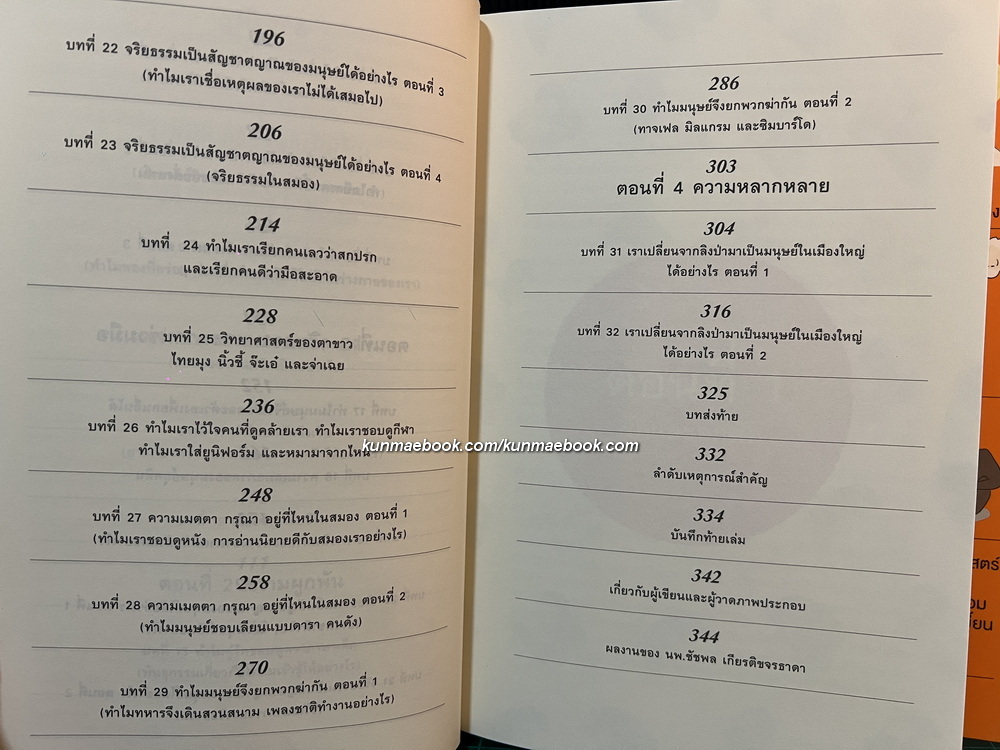 196
บทที่ 22 จริยธรรมเป็นสัญชาตญาณของมนุษย์ได้อย่างไร ตอนที่ 3
(ทำไมเราเชื่อเหตุผลของเราไม่ได้เสมอไป)
206
บทที่ 23 จริยธรรมเป็นสัญชาตญาณของมนุษย์ได้อย่างไร ตอนที่ 4
(จริยธรรมในสมอง)
214
บทที่ 24 ทำไมเราเรียกคนเลวว่าสกปรก
และเรียกคนดีว่ามือสะอาด
228
บทที่ 25 วิทยาศาสตร์ของตาขาว
ไทยมุง นิ้วชี้ จ๊ะเอ๋ และจ่าเฉย
236
บทที่ 26 ทำไมเราไว้ใจคนที่ดูคล้ายเรา ทำไมเราชอบดูกีฬา
ทำไมเราใส่ยูนิฟอร์ม และหมามาจากไหน
248
บทที่ 27 ความเมตตา กรุณา อยู่ที่ไหนในสมอง ตอนที่ 1
(ทำไมเราชอบดูหนัง การอ่านนิยายดีกับสมองเราอย่างไร)
258
บทที่ 28 ความเมตตา กรุณา อยู่ที่ไหนในสมอง ตอนที่ 2
(ทำไมมนุษย์ชอบเลียนแบบดารา คนดัง)
270
บทที่ 29 ทำไมมนุษย์จึงยกพวกฆ่ากัน ตอนที่ 1
(ทำไมทหารจึงเดินสวนสนาม เพลงชาติทำงานอย่างไร)
286
บทที่ 30 ทำไมมนุษย์จึงยกพวกฆ่ากัน ตอนที่ 2
(ทาจเฟล มิลแกรม และซิมบาร์โด)
303
ตอนที่ 4 ความหลากหลาย
304
บทที่ 31 เราเปลี่ยนจากลิงป่ามาเป็นมนุษย์ในเมืองใหญ่
ได้อย่างไร ตอนที่ 1
316
บทที่ 32 เราเปลี่ยนจากลิงป่ามาเป็นมนุษย์ในเมืองใหญ่
ได้อย่างไร ตอนที่ 2
325
บทส่งท้าย
332
ลำดับเหตุการณ์สำคัญ
334
บันทึกท้ายเล่ม
342
เกี่ยวกับผู้เขียนและผู้วาดภาพประกอบ
344
ผลงานของ นพ.ชัชพล เกียรติขจรธาดา
kunmaebook.com/kunmaebook.com